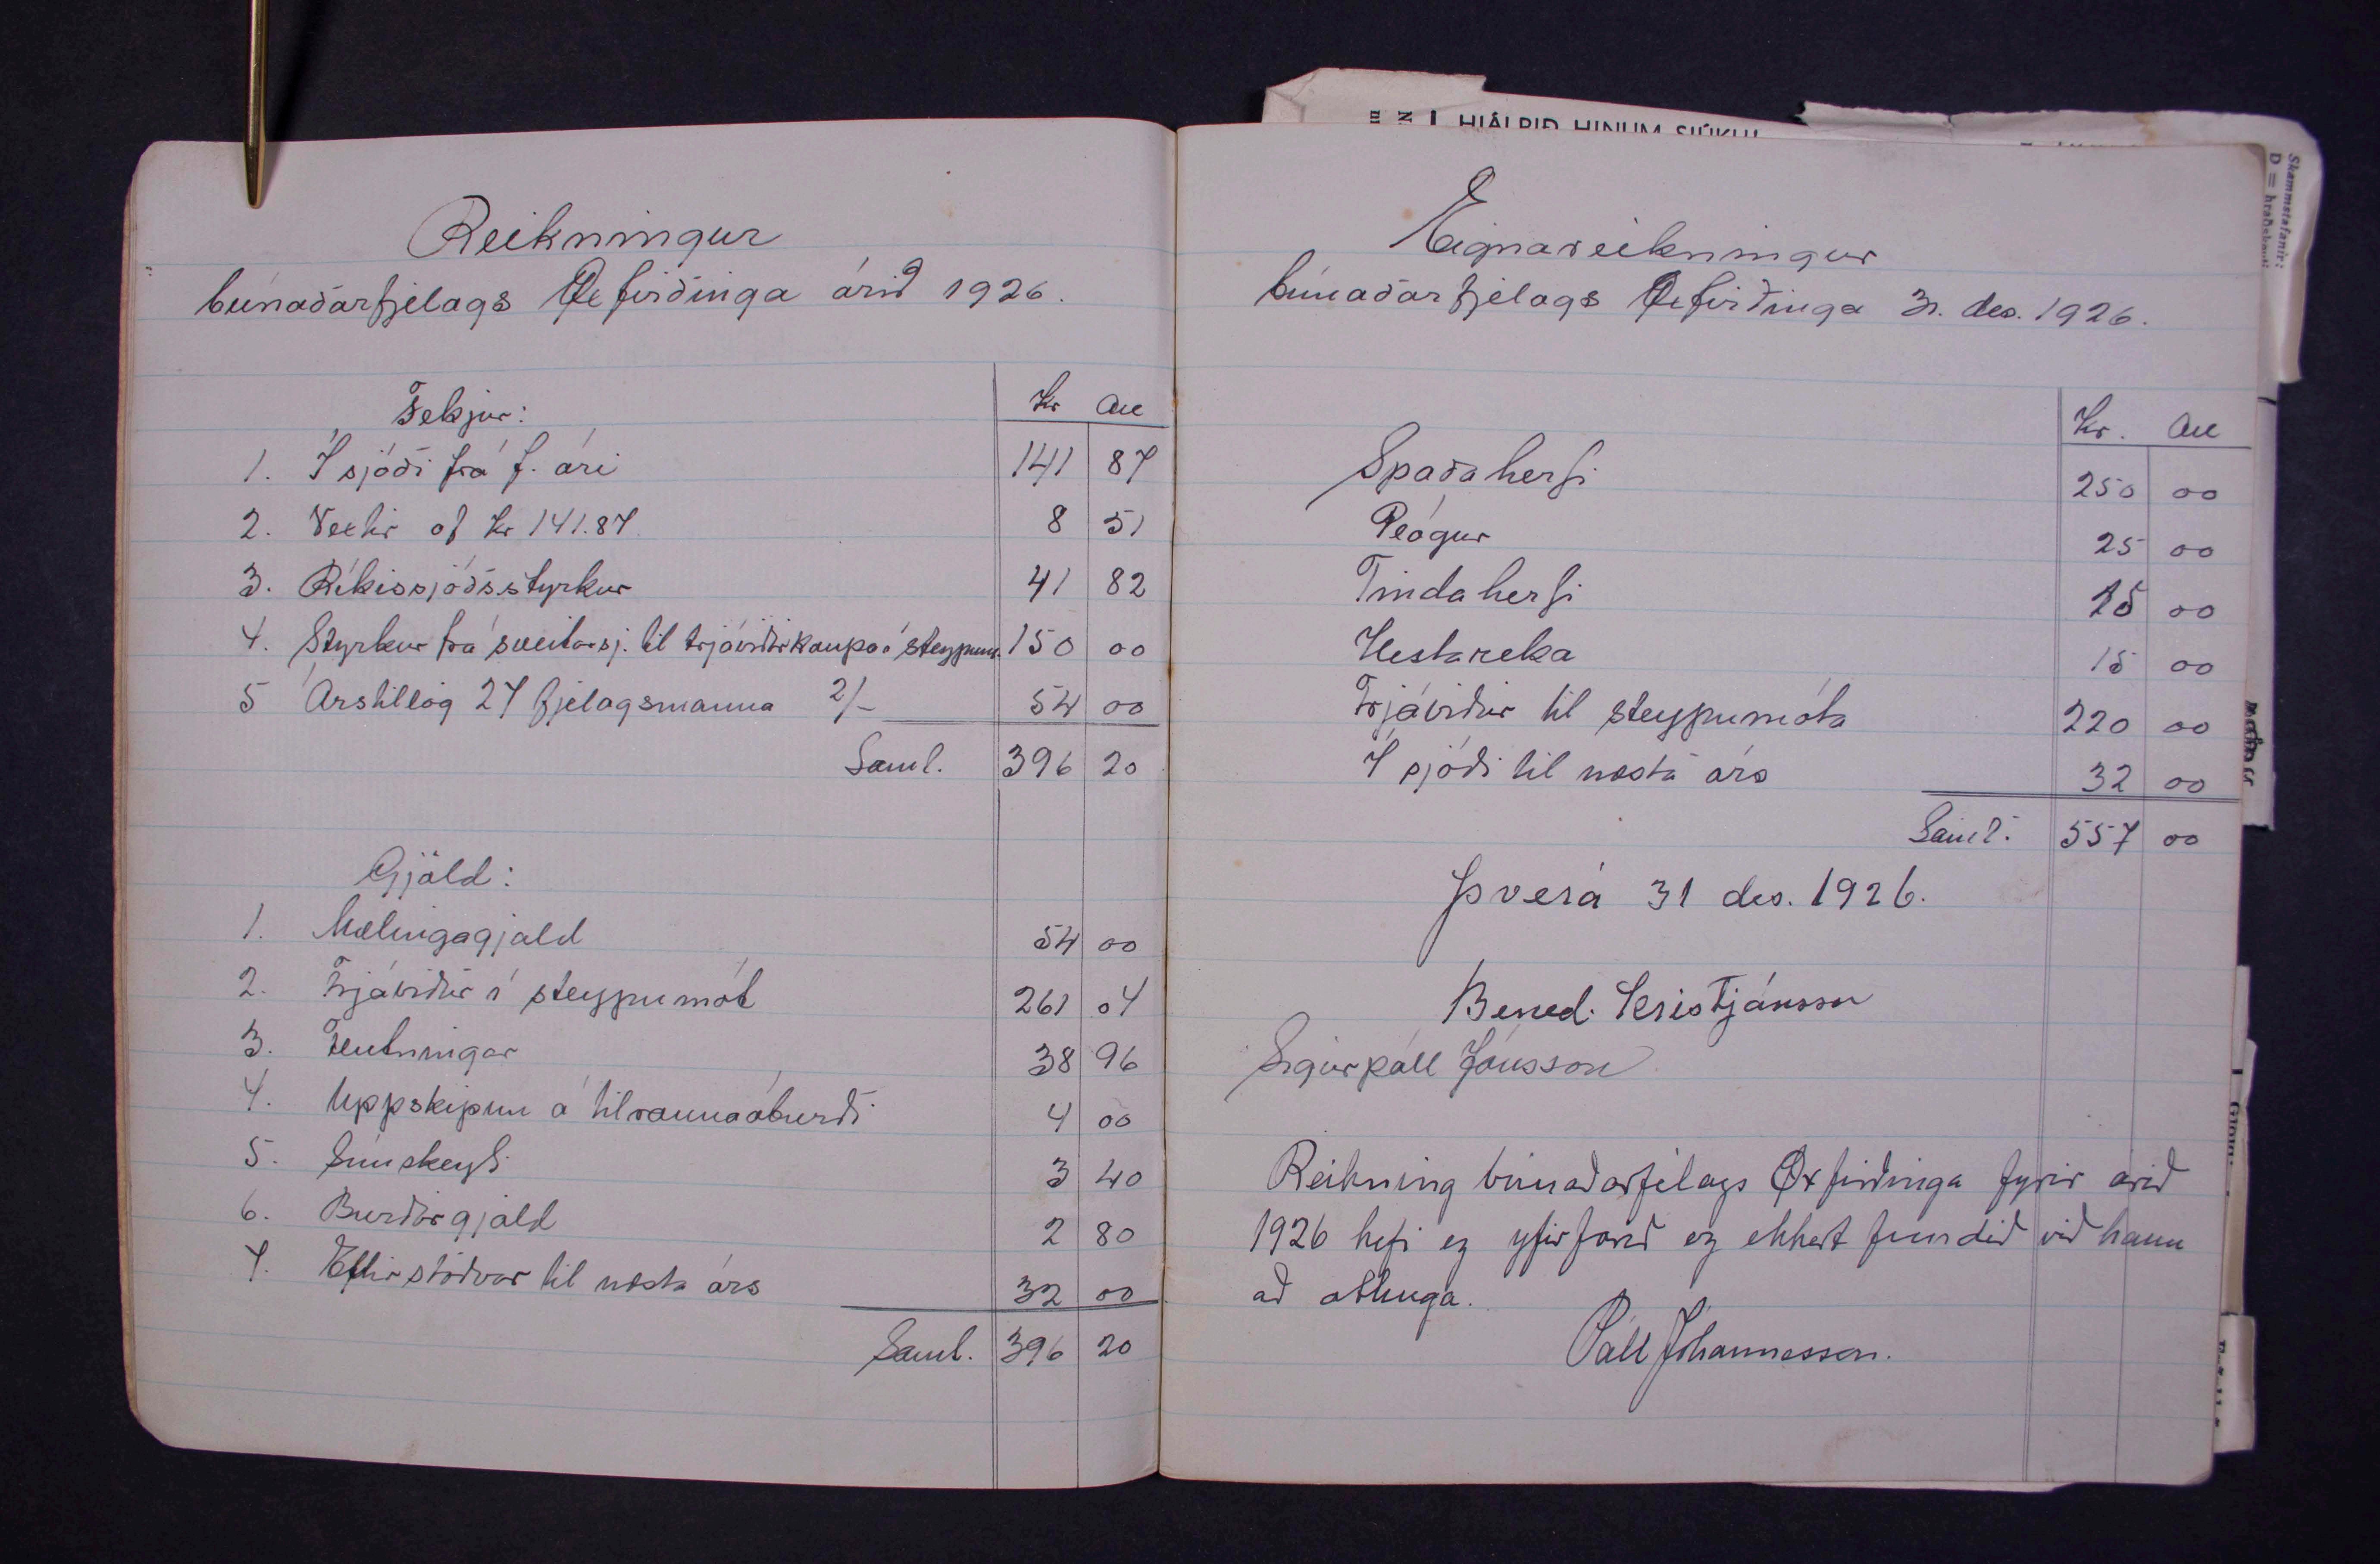 Reikningur
búnaðarfjelags Øxfirðinga árið 1926.
Tekjur:
Kr Au
1. Í sjóði frá f. ári 141 87
2. Vextir af kr 141.87 8 51
3. Ríkissjóðsstyrkur 41 82
4. Styrkur frá sveitarsj. til trjáviðarkaupa í steypum. 150 00
5 Árstillög 27 fjelagsmanna 2/- 54 00
Saml. 396 20
Gjöld:
1. Mælingagjald 54 00
2. Trjáviður í steypumót 261 04
3. Flutningar 38 96
4. Uppskipun á tilraunaáburði 4 00
5. Símskeyti 3 40
6. Burðargjald 2 80
7. Eftirstöðvar til næsta árs 32 00
Saml. 396 20
HJÁLPIÐ HINUM SJÚKU!
Skammstafanir:
Eignareikningur
búnaðarfjelags Øxfirðinga 31. des. 1926.
Kr. Au
Spaðaherfi 250 00
Plógur 25 00
Tindaherfi 15 00
Hestareka 15 00
Trjáviður til steypumóta 220 00
Í sjóði til næsta árs 32 00
Saml. 557 00
Þverá 31 des. 1926.
Bened. Kristjánsson
Sigurpáll Jónsson
Reikning búnaðarfélags Øxfirðinga fyrir árið
1926 hefi eg yfirfarið og ekkert fundið við hann
að athuga.
Páll Jóhannesson.